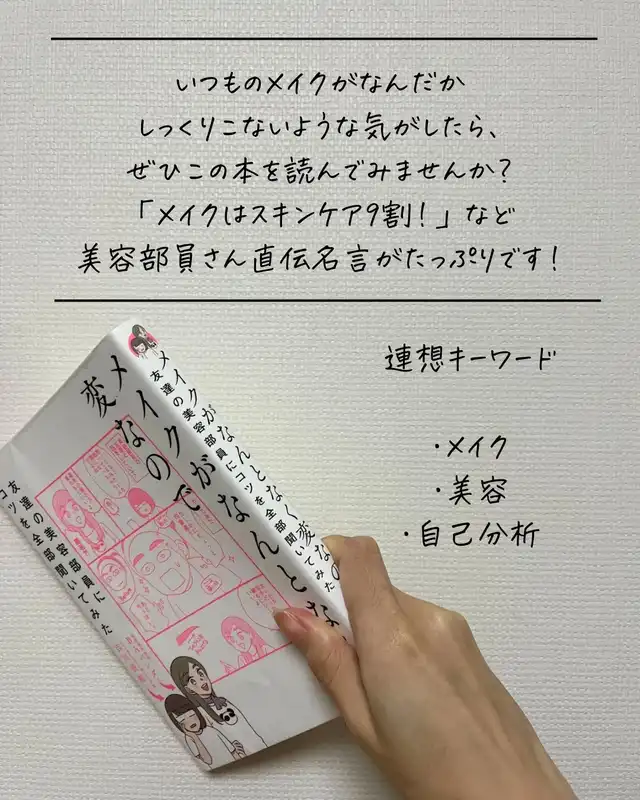 いつものメイクがなんだか
しっくりこないような気がしたら、
ぜひこの本を読んでみませんか?
「メイクはスキンケア9割!」など
美容部員さん直伝名言がたっぷりです!
連想キーワード
・メイク
・美容
・自己分析
メイクがなんとなく変なの
友達の美容部員にコツを全部聞いてみた
メイクがなんとな
変なので
友達の美容部員に
コツを全部聞いてみた